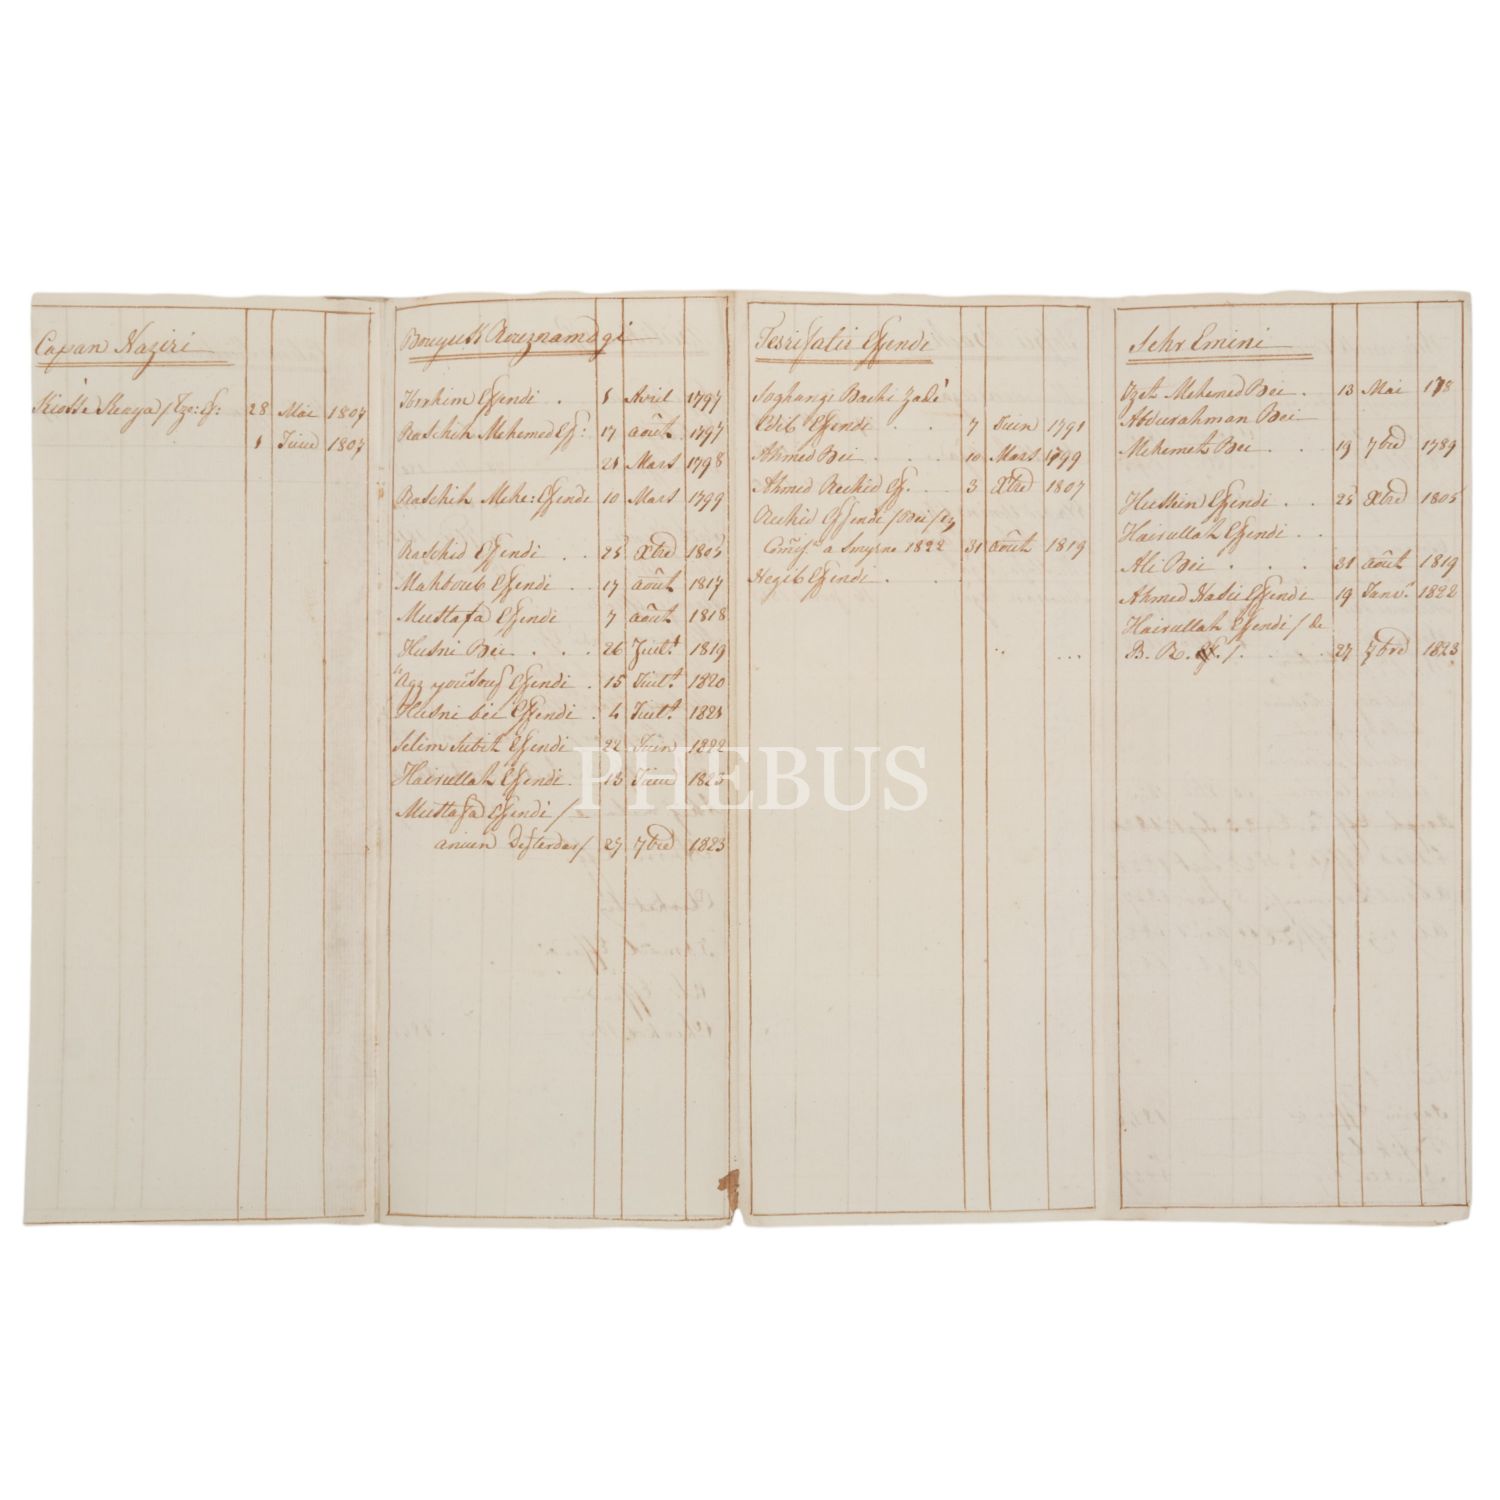 Capan Naziri
Kiosse Kenya / Eze: Ef: 28 Mai 1807
1 Juin 1807
Bouyuk Rouznamdgi
Ibrahim Effendi . 1 Avril 1797
Raschih Mehemed Ef: 17 août 1797
21 Mars 1798
Raschih Mehe: Effendi 10 Mars 1799
Raschid Effendi . . 25 Xbre 1805
Mahboub Effendi . 17 août 1817
Mustafa Effendi 7 août 1818
Husni Bei . . . 26 Juilt 1819
Aga youssouf Effendi . 15 Juilt 1820
Husni bei Effendi . 4 Juilt 1821
Selim Sabit Effendi 22 Juin 1822
Hairullah Effendi . 13 Juin 1823
Mustafa Effendi /
ancien Defterdar / 27 7bre 1823
Tesrifatir Effendi
Soghangi Bachi Zadè
Edib Effendi . . 7 Juin 1791
Ahmed Bei . . . 10 Mars 1799
Ahmed Rechid Ef. 3 Xbre 1807
Rechid Effendi / Bei /
a Smyrne 1822 31 août 1819
Negib Effendi . . .
Sehr Emini
Izet Mehemed Bei . 13 Mai 178
Abdurahman Bei
Mehemet Bei . . 19 7bre 1789
Hussein Effendi . . 25 Xbre 1805
Hairullah Effendi . .
Ali Bei . . . 31 août 1819
Ahmed Effendi 19 Janvr 1822
Hairullah Effendi / de
B. R. / . . . . 27 7bre 1823
PHEBUS